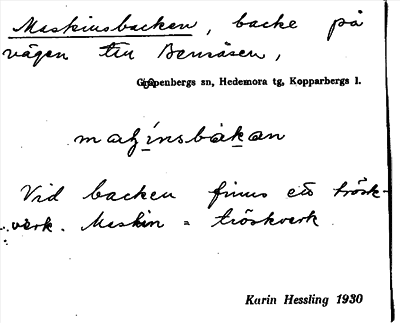 Maskinsbacken, backe på
vägen till Bensåsen,
Garpenbergs sn, Hedemora tg, Kopparbergs l.
maʃinsbakan
Vid backen finns ett trösk-
verk. Maskin = tröskverk
Karin Hessling 1930